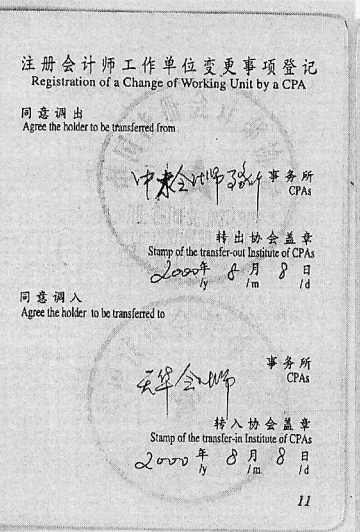 注册会计师工作单位变更事项登记
Registration of a Change of Working Unit by a CPA
同意调出
Agree the holder to be transferred from
会计师 事务所
CPAs
转出协会盖章
Stamp of the transfer-out Institute of CPAs
2000年 8月 8日
/y /m /d
同意调入
Agree the holder to be transferred to
天华会计师 事务所
CPAs
转入协会盖章
Stamp of the transfer-in Institute of CPAs
2000年 8月 8日
/y /m /d
11